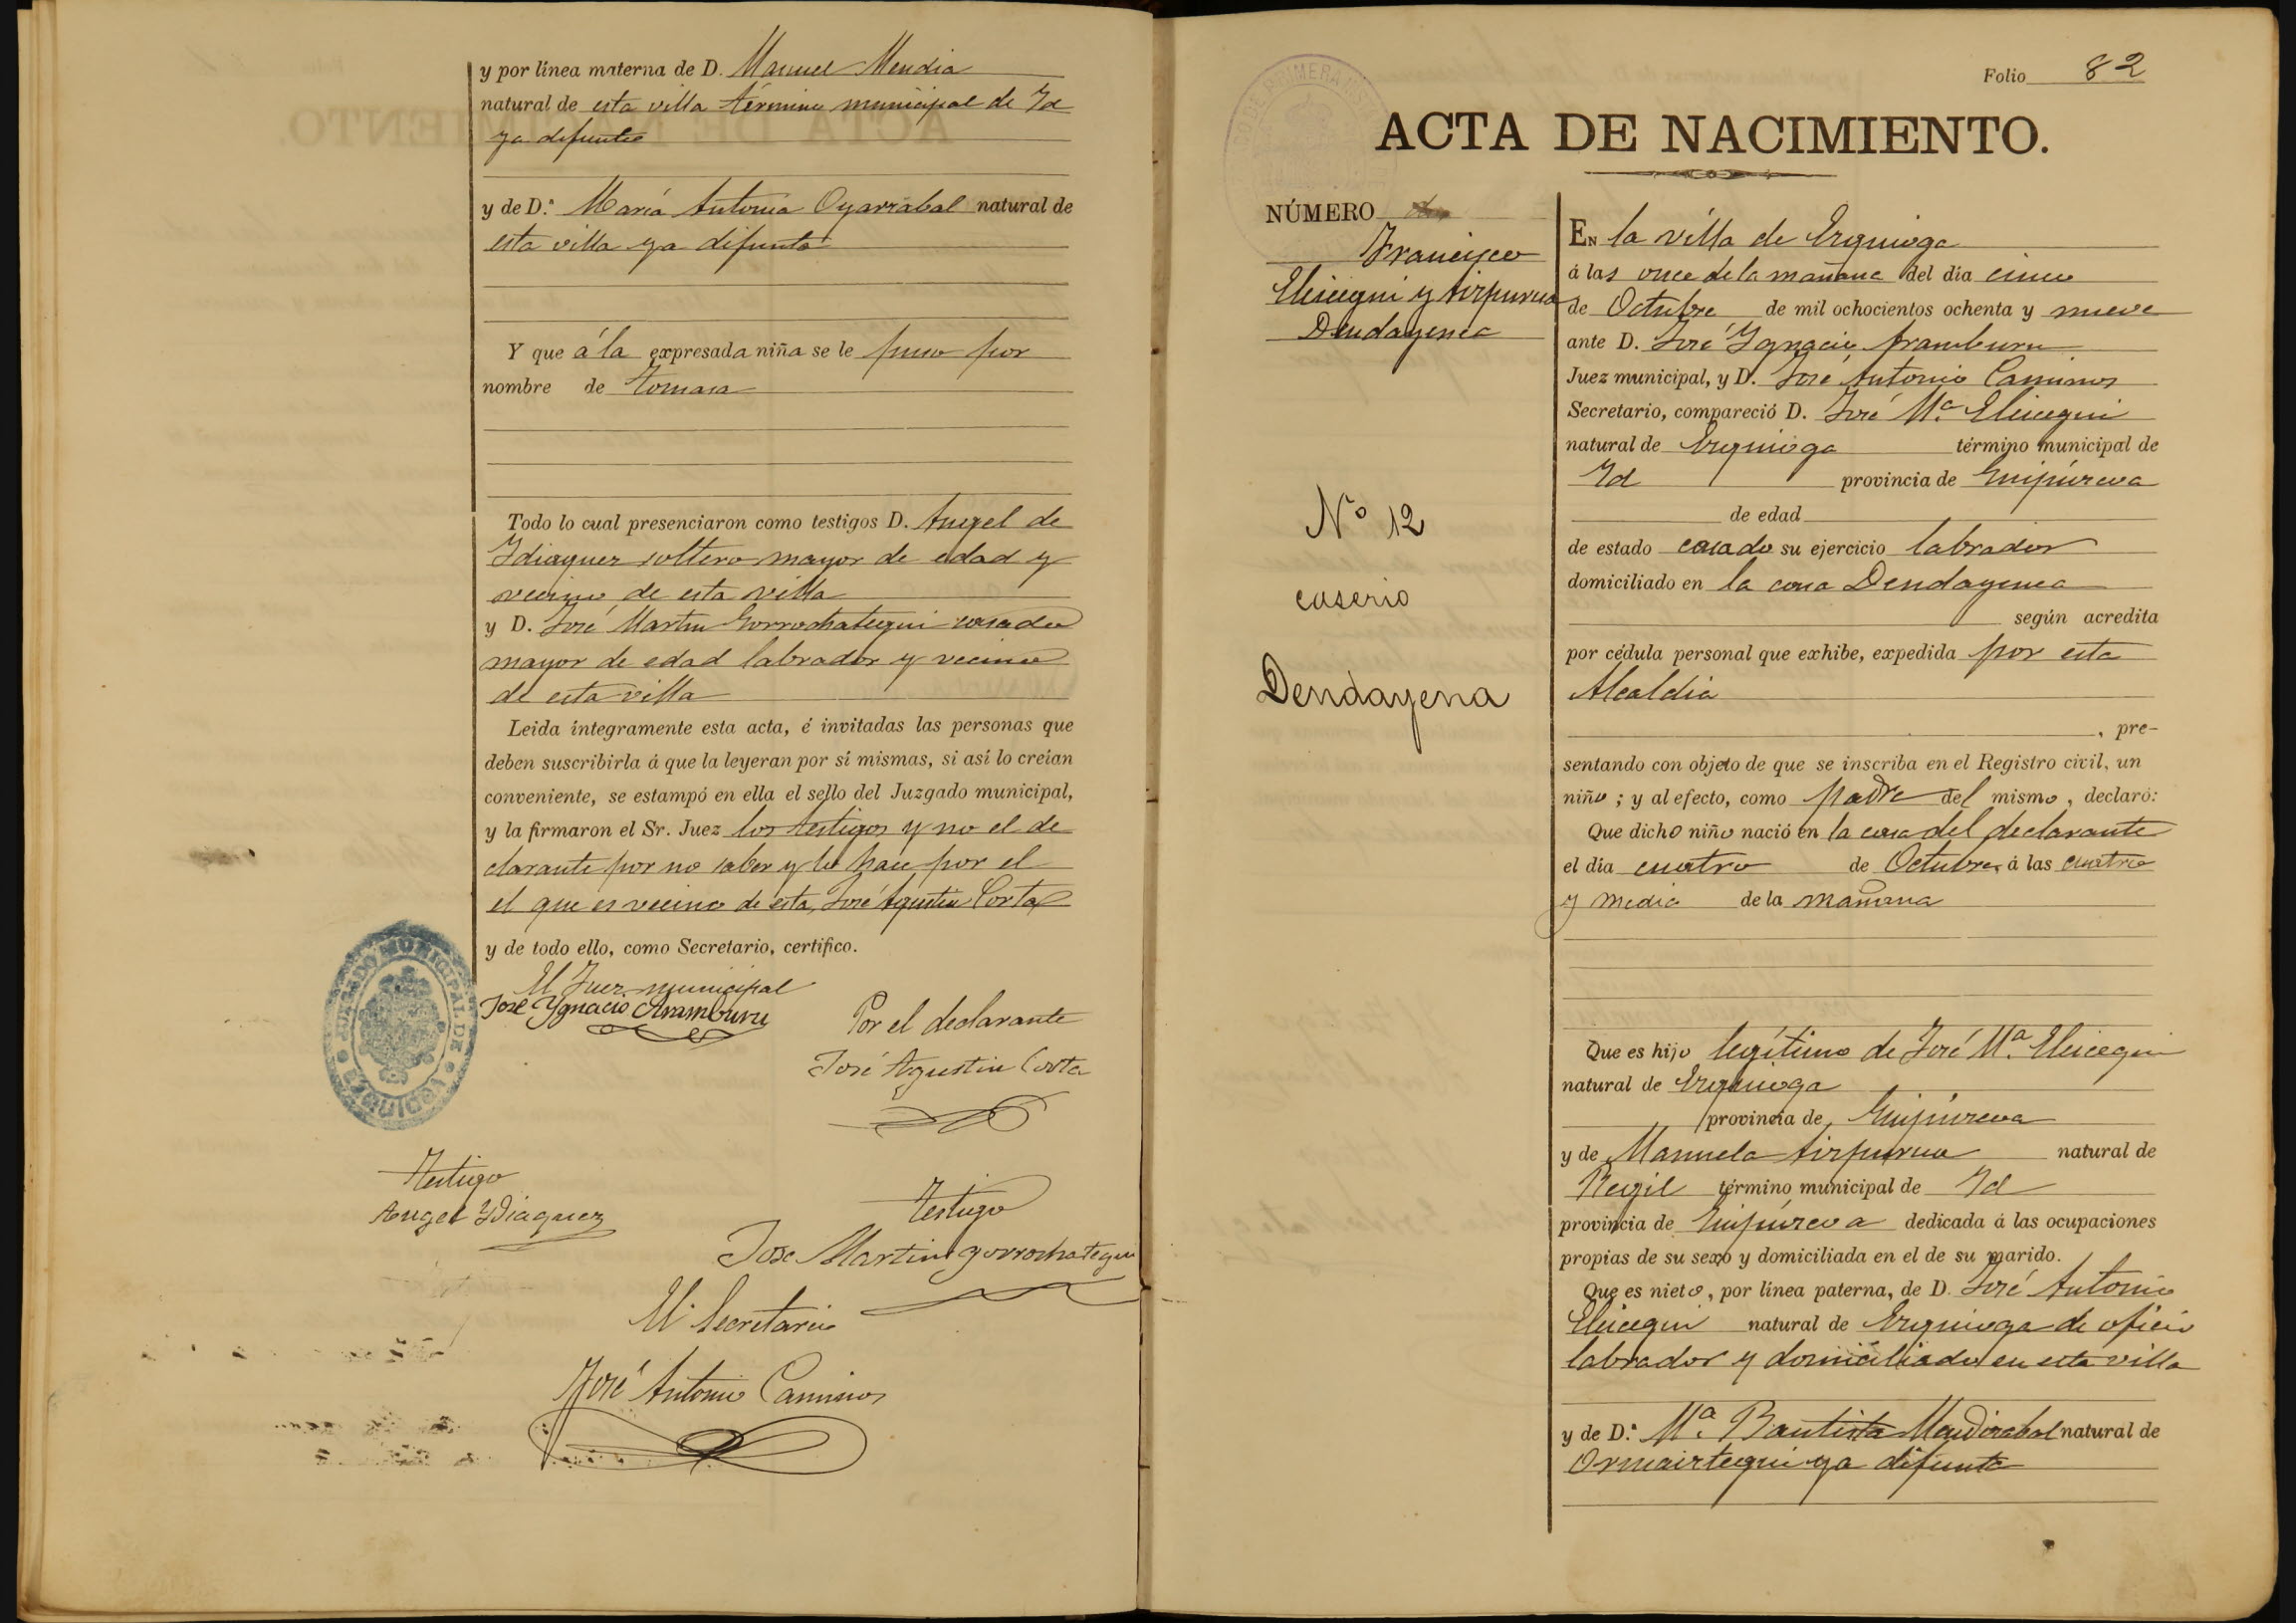 y por línea materna de D. Manuel Mendia
natural de esta villa término municipal de Id
ya difunto
y de D.ª María Antonia Oyarzabal natural de
esta villa ya difunta
Y que á la expresada niña se le puso por
nombre de Tomasa
Todo lo cual presenciaron como testigos D. Angel de
Idiaquez soltero mayor de edad y
vecino de esta villa
y D. José Martin Gorrochategui casado
mayor de edad labrador y vecino
de esta villa
Leida íntegramente esta acta, é invitadas las personas que
deben suscribirla á que la leyeran por sí mismas, si así lo creían
conveniente, se estampó en ella el sello del Juzgado municipal,
y la firmaron el Sr. Juez los testigos y no el de
clarante por no saber y lo hace por el
el que es vecino de esta, José Agustin Corta
y de todo ello, como Secretario, certifico.
El Juez municipal
José Ygnacio Aramburu
Por el declarante
José Agustin Corta
JUZGADO MUNICIPAL DE EZQUIOGA
Testigo
Angel Ydiaquez
Testigo
Jose Martin Gorrochategui
El Secretario
José Antonio Caminos
Folio 82
ACTA DE NACIMIENTO.
NÚMERO
Francisco
Eleicegui y Aizpurua
Dendayenea
Nº 12
caserio
Dendayena
EN la villa de Ezquioga
á las once de la mañana del día cinco
de Octubre de mil ochocientos ochenta y nueve
ante D. José Ygnacio Aramburu
Juez municipal, y D. José Antonio Caminos
Secretario, compareció D. José Mª Eleicegui
natural de Ezquioga término municipal de
Id provincia de Guipúzcoa
de edad
de estado casado su ejercicio labrador
domiciliado en la casa Dendayenea
según acredita
por cédula personal que exhibe, expedida por esta
Alcaldia
, pre-
sentando con objeto de que se inscriba en el Registro civil, un
niño ; y al efecto, como padre del mismo , declaró:
Que dicho niño nació en la casa del declarante
el día cuatro de Octubre á las cuatro
y media de la mañana
Que es hijo legítimo de José Mª Eleicegui
natural de Ezquioga
provincia de Guipúzcoa
y de Manuela Aizpurua natural de
Regil término municipal de Id
provincia de Guipúzcoa dedicada á las ocupaciones
propias de su sexo y domiciliada en el de su marido.
Que es nieto , por línea paterna, de D. José Antonio
Eleicegui natural de Ezquioga de oficio
labrador y domiciliado en esta villa
y de D.ª Mª Bautista Mendizabal natural de
Ormaiztegui ya difunta